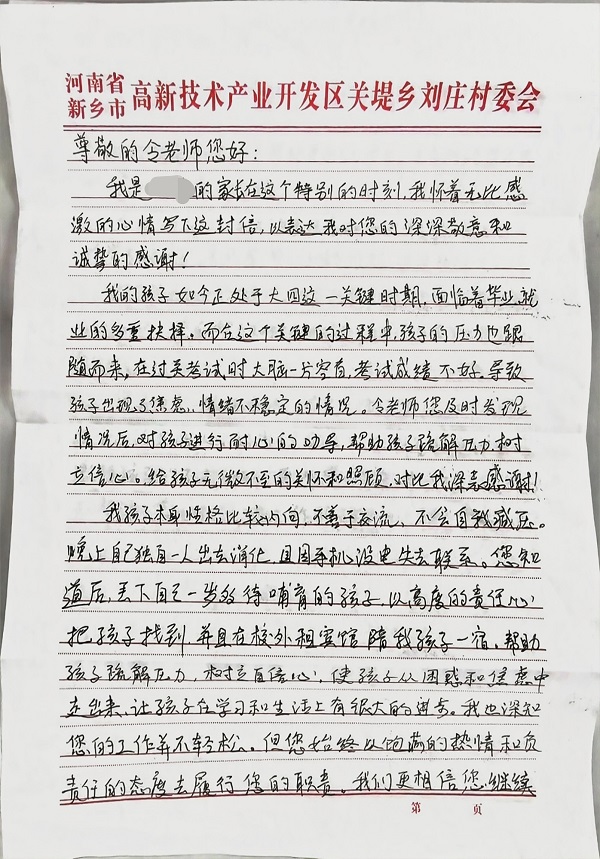 河南省
新乡市 高新技术产业开发区关堤乡刘庄村委会
尊敬的令老师您好：
我是 的家长在这个特别的时刻,我怀着无比感
激的心情写下这封信,以表达我对您的深深敬意和
诚挚的感谢!
我的孩子如今正处于大四这一关键时期,面临着毕业,就
业的多重抉择。而在这个关键的过程中,孩子的压力也跟
随而来,在过关考试时大脑一片空白,考试成绩不好。导致
孩子出现了焦虑、情绪不稳定的情况。令老师您及时发现
情况后,对孩子进行耐心的劝导,帮助孩子疏解压力,树
立信心。给孩子无微不至的关怀和照顾,对此我深表感谢!
我孩子本身性格比较内向,不善于交流、不会自我减压。
晚上自己独自一人出去消化,且因手机没电失去联系。您知
道后,丢下自己一岁多待哺育的孩子,以高度的责任心
把孩子找到并且在校外租宾馆陪我孩子一宿。帮助
孩子疏解压力,树立自信心,使孩子从困惑和焦虑中
走出来,让孩子在学习和生活上有很大的进步。我也深知
您的工作并不轻松。但您始终以饱满的热情和负
责任的态度去履行您的职责。我们更相信您继续
第 页